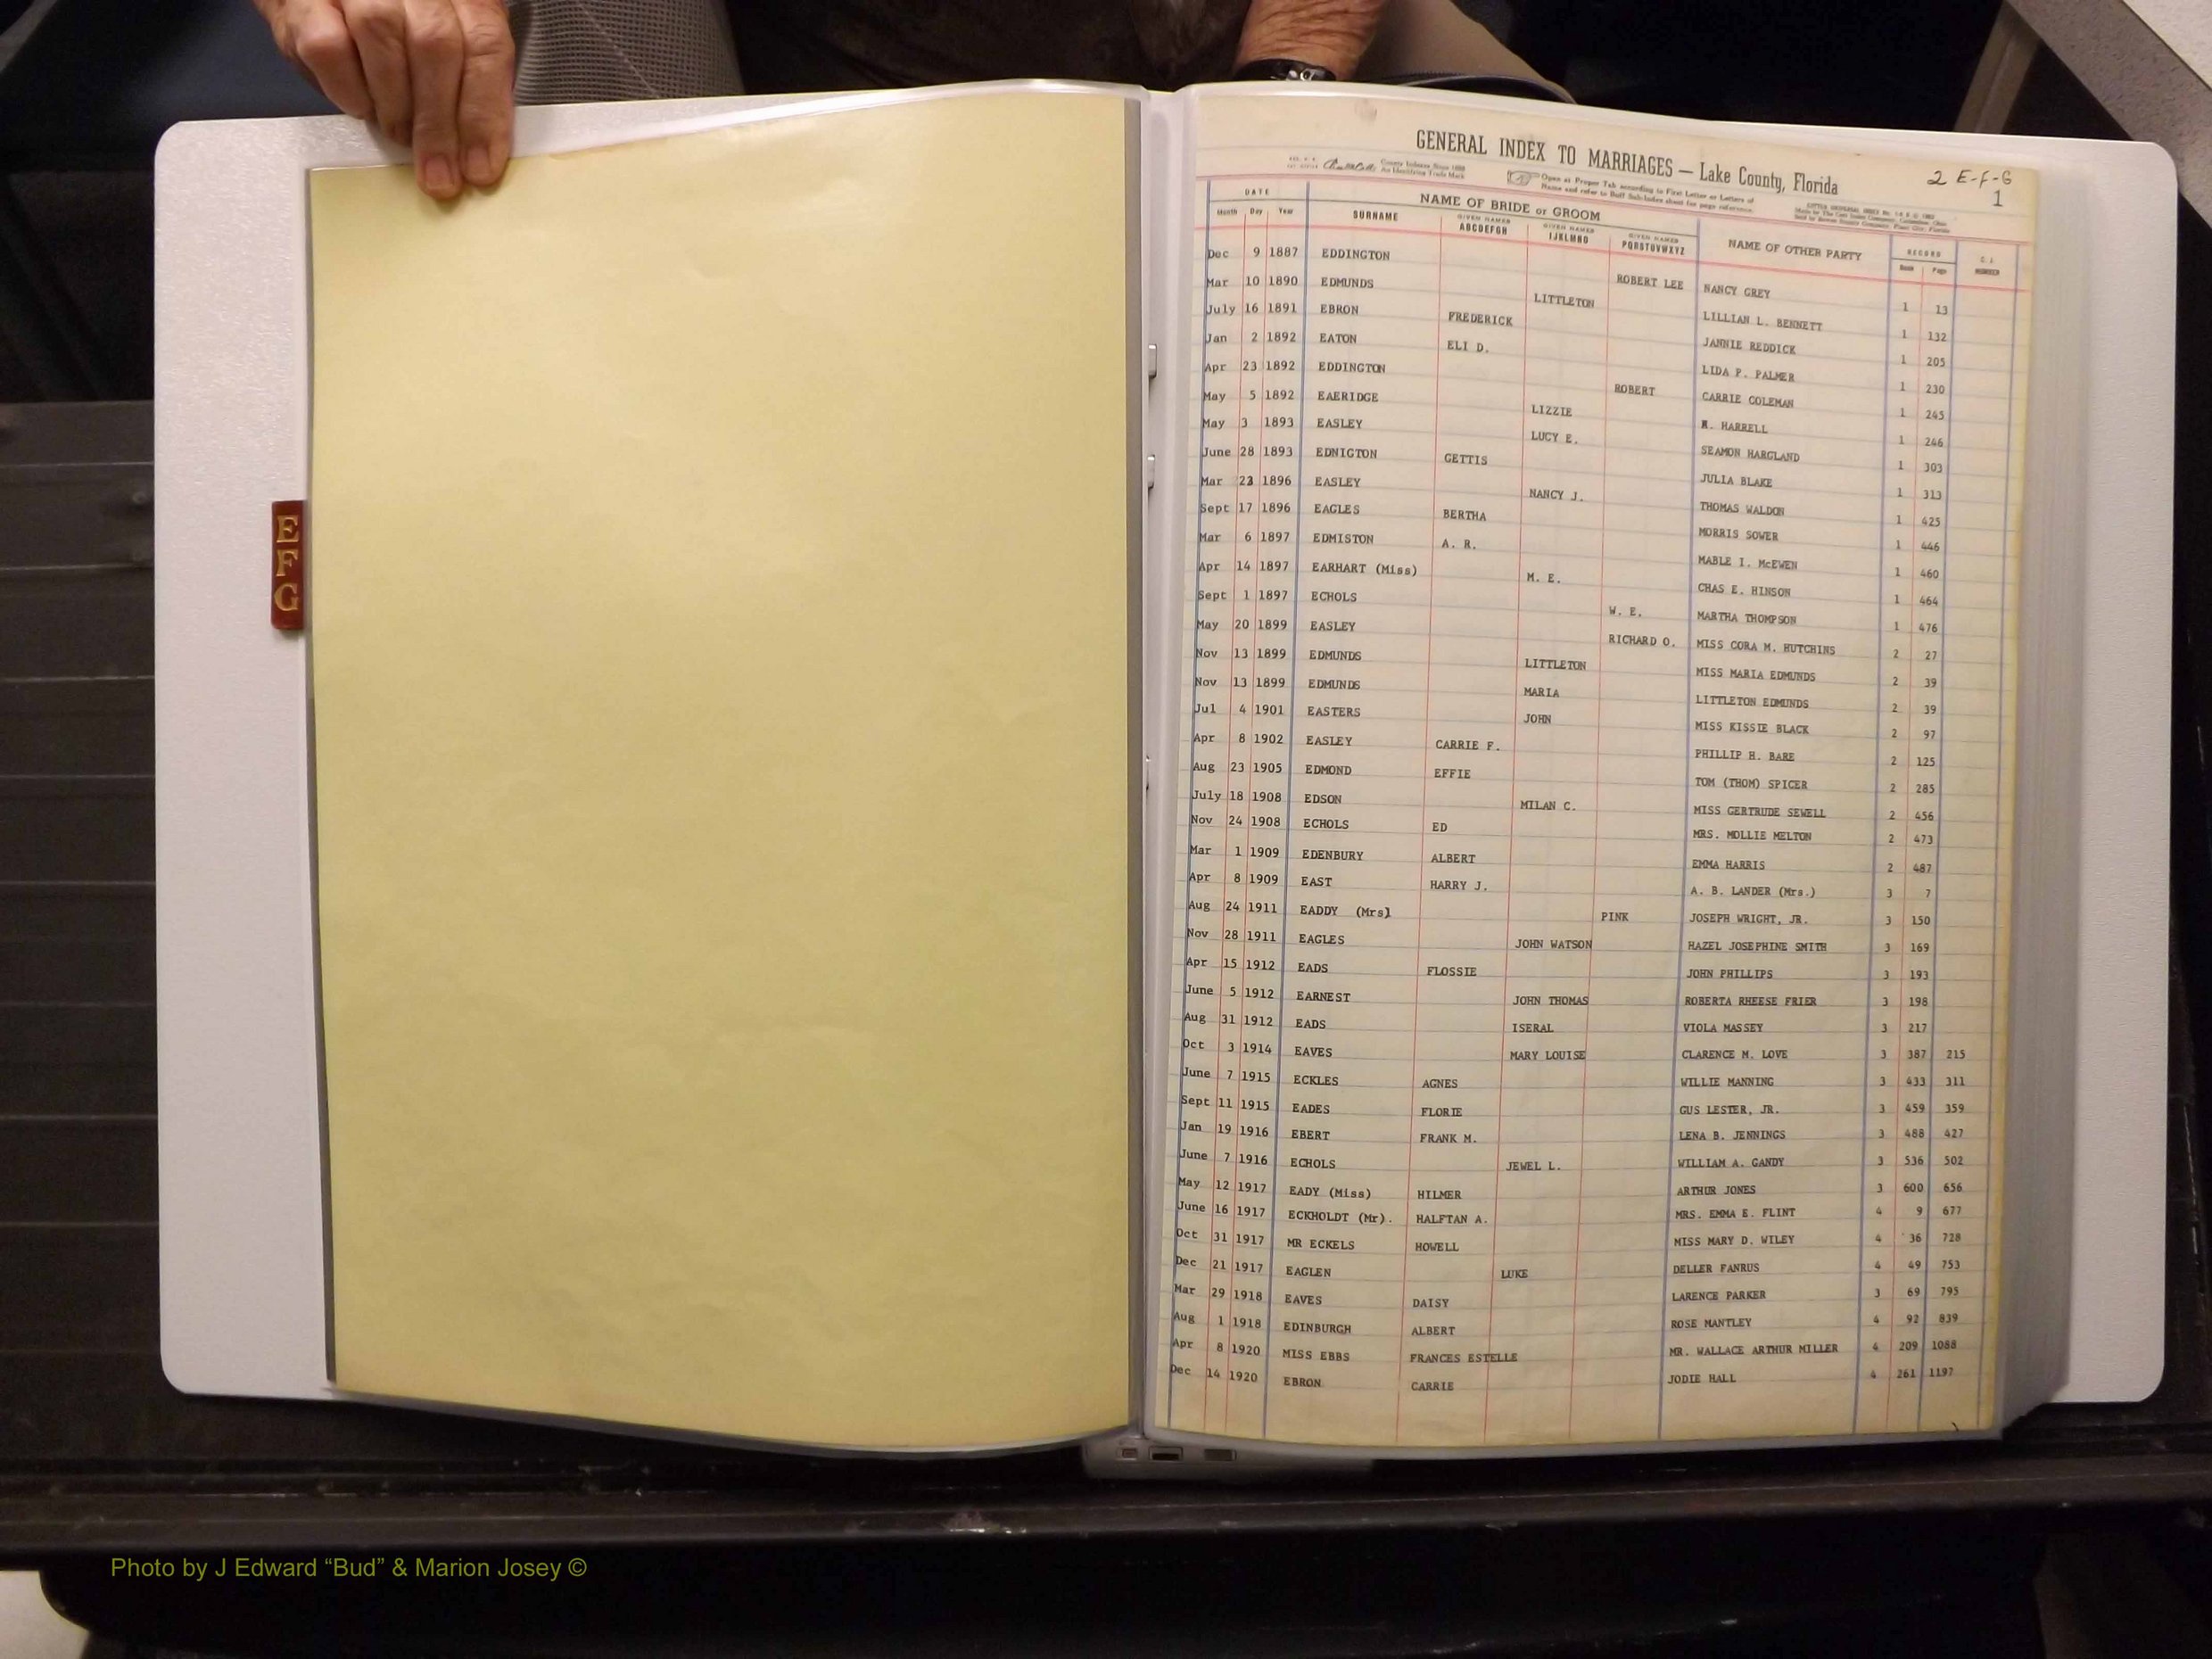 E
F
G
GENERAL INDEX TO MARRIAGES — Lake County, Florida
2 E-F-G
1
County Indexes Since 1888
An Identifying Trade Mark
Open at Proper Tab according to First Letter or Letters of
Name and refer to Buff Sub-Index sheet for page reference.
DATE NAME OF BRIDE or GROOM NAME OF OTHER PARTY RECORD
Month Day Year SURNAME GIVEN NAMES ABCDEFGH GIVEN NAMES IJKLMNO GIVEN NAMES PQRSTUVWXYZ Book Page C.J. NUMBER
Dec 9 1887 EDDINGTON ROBERT LEE NANCY GREY 1 13
Mar 10 1890 EDMUNDS LITTLETON LILLIAN L. BENNETT 1 132
July 16 1891 EBRON FREDERICK JANNIE REDDICK 1 205
Jan 2 1892 EATON ELI D. LIDA P. PALMER 1 230
Apr 23 1892 EDDINGTON ROBERT CARRIE COLEMAN 1 245
May 5 1892 EAERIDGE LIZZIE HARRELL 1 246
May 3 1893 EASLEY LUCY E. SEAMON HARGLAND 1 303
June 28 1893 EDNIGTON GETTIS JULIA BLAKE 1 313
Mar 23 1896 EASLEY NANCY J. THOMAS WALDON 1 425
Sept 17 1896 EAGLES BERTHA MORRIS SOWER 1 446
Mar 6 1897 EDMISTON A. R. MABLE I. McEWEN 1 460
Apr 14 1897 EARHART (Miss) M. E. CHAS E. HINSON 1 464
Sept 1 1897 ECHOLS W. E. MARTHA THOMPSON 1 476
May 20 1899 EASLEY RICHARD O. MISS CORA M. HUTCHINS 2 27
Nov 13 1899 EDMUNDS LITTLETON MISS MARIA EDMUNDS 2 39
Nov 13 1899 EDMUNDS MARIA LITTLETON EDMUNDS 2 39
Jul 4 1901 EASTERS JOHN MISS KISSIE BLACK 2 97
Apr 8 1902 EASLEY CARRIE F. PHILLIP H. BARE 2 125
Aug 23 1905 EDMOND EFFIE TOM (THOM) SPICER 2 285
July 18 1908 EDSON MILAN C. MISS GERTRUDE SEWELL 2 456
Nov 24 1908 ECHOLS ED MRS. MOLLIE MELTON 2 473
Mar 1 1909 EDENBURY ALBERT EMMA HARRIS 2 487
Apr 8 1909 EAST HARRY J. A. B. LANDER (Mrs.) 3 7
Aug 24 1911 EADDY (Mrs) PINK JOSEPH WRIGHT, JR. 3 150
Nov 28 1911 EAGLES JOHN WATSON HAZEL JOSEPHINE SMITH 3 169
Apr 15 1912 EADS FLOSSIE JOHN PHILLIPS 3 193
June 5 1912 EARNEST JOHN THOMAS ROBERTA RHEESE FRIER 3 198
Aug 31 1912 EADS ISERAL VIOLA MASSEY 3 217
Oct 3 1914 EAVES MARY LOUISE CLARENCE M. LOVE 3 387 215
June 7 1915 ECKLES AGNES WILLIE MANNING 3 433 311
Sept 11 1915 EADES FLORIE GUS LESTER, JR. 3 459 359
Jan 19 1916 EBERT FRANK M. LENA B. JENNINGS 3 488 427
June 7 1916 ECHOLS JEWEL L. WILLIAM A. GANDY 3 536 502
May 12 1917 EADY (Miss) HILMER ARTHUR JONES 3 600 656
June 16 1917 ECKHOLDT (Mr). HALFTAN A. MRS. EMMA E. FLINT 4 9 677
Oct 31 1917 MR ECKELS HOWELL MISS MARY D. WILEY 4 36 728
Dec 21 1917 EAGLEN LUKE DELLER FANRUS 4 49 753
Mar 29 1918 EAVES DAISY LARENCE PARKER 3 69 795
Aug 1 1918 EDINBURGH ALBERT ROSE MANTLEY 4 92 839
Apr 8 1920 MISS EBBS FRANCES ESTELLE MR. WALLACE ARTHUR MILLER 4 209 1088
Dec 14 1920 EBRON CARRIE JODIE HALL 4 261 1197
Photo by J Edward “Bud” & Marion Josey ©